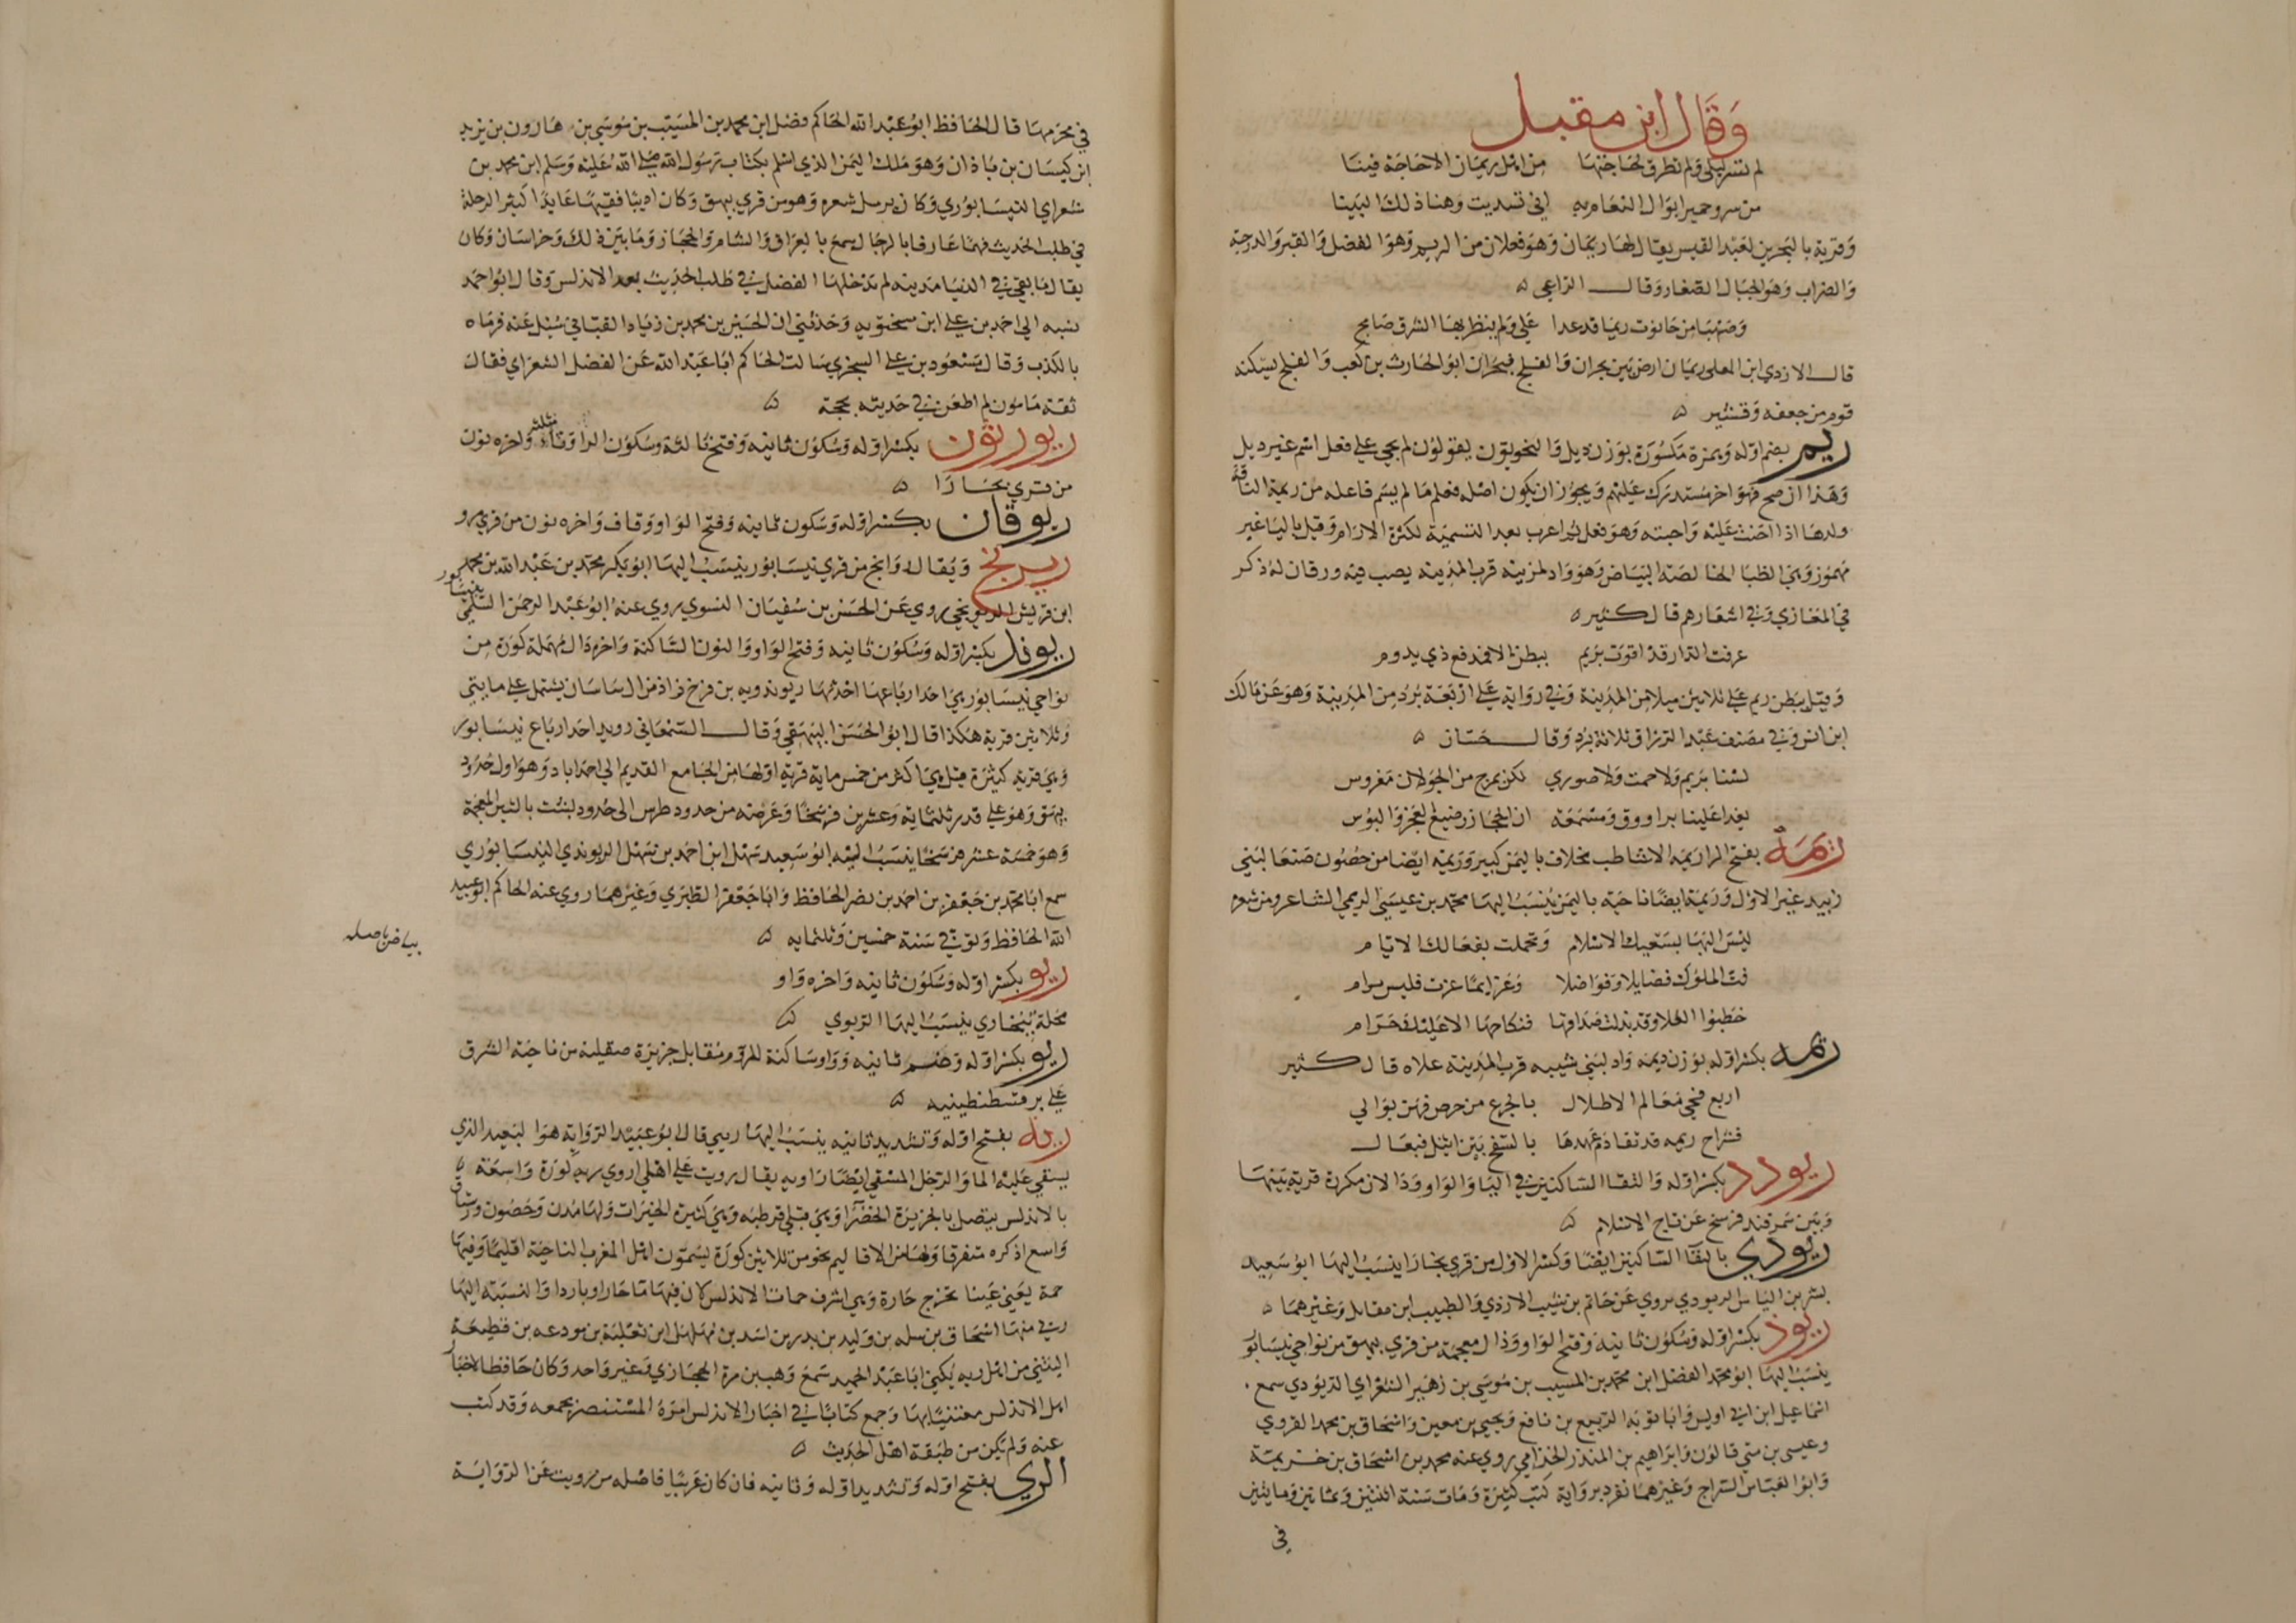 وقال ابن مقبل
لم تسر ليلى ولم تطرق لحاجتها من اهل ريمان الا حاجة فينا
من سرو حمير ابوال البغال به اني تسديت وهنا ذلك البينا
وقرية بالبحرين لعبد القيس يقال لها ريمان وهو فعلان من الريم وهو الفضل والقبر والدرجة
والضراب وهو الجبال الصغار وقال الراعي ه
وصهبا من حانوت ريمان قد غدا علي ولم ينظر بها الشرق صابح
قال الازدي ابن المعلى ريمان ارض بين نجران والفلج فنجران ابو الحارث بن كعب والفلج يسكنه
قوم من جعفه وقشير ه
ريم بضم اوله وهمزة مكسورة بوزن ديل والنحويون يقولون لم يجي على فعل اسم غير ديل
وهذا ان صح فهو اخر مستدرك عليهم ويجوز ان يكون اصله فعلم ما لم يسم فاعله من ريمة الناقة
ولدها اذا احنت عليه واحبته وهو فعل ثم اعرب بعد التسمية لكثرة الارام وقيل باليا غير
مهموز وهي الظبا الخالصة البياض وهو واد لمزينه قرب المدينه يصب فيه ورقان له ذكر
في المغازي وفي اشعارهم قال كثير ه
عرفت الدار قد اقوت بريم ببطن الى فمدفع ذي يدوم
وقيل بطن ريم على ثلاثين ميلا من المدينة وفي رواية على اربعة برد من المدينة وهو عن مالك
ابن انس وفي مصنف عبد الرزاق ثلاثة برد وقال حسان ه
لسنا بريم ولا حمت ولا صوري لكن بمرج من الجولان مغروس
يغدا علينا براووق ومسمعة ان الحجاز رضيع لعجز والبوس
ريمة بفتح الرا ريمة الاشاطب مخلاف باليمن كبير وريمه ايضا من حصون صنعا لبني
زبيد غير الاول وريمة ايضا ناحية باليمن ينسب اليها محمد بن عيسى الريمي الشاعر ومن شعره
لبس البها بسعيك الاسلام وتجملت بفعالك الايام
فت الملوك فضايلا وفواضلا وعزايما عزت فليس مرام
خطبوا العلا وقد بذلت صداقها فنكاحها الا عليك حرام
ريمه بكسر اوله بوزن ديمه واد لبني شيبه قرب المدينة علاه قال كثير
اربع فحي معالم الاطلال بالجزع من حرص فهن بوالي
فشراج ريمه قد تقادم عهدها بالسفح بين اثيل فبعال
ريودد بكسر اوله والتقا الساكنين في اليا والواو ودالان مكررة قرية بينها
وبين سمرقند فرسخ عن تاج الاسلام ه
ريودي بالتقا الساكنين ايضا وكسر الاول من قرى بخارا ينسب اليها ابو سعيد
بشر بن الياس الريودي يروي عن حاتم بن شبيب الازدي والطبيب ابن مقاتل وغيرهما ه
ريوذ بكسر اوله وسكون ثانيه وفتح الواو وذال معجمة من قري بيهق من نواحي نيسابور
ينسب اليها ابو محمد الفضل ابن محمد بن المسيب بن موسى بن زهير الشعراي الريودي سمع
اسماعيل ابن ابي اويس وابا توبه الربيع بن نافع ويحيي بن معين واسحاق بن محمد الفروي
وعيسى بن متي قالون وابراهيم بن المنذر الحزامي روي عنه محمد بن اسحاق بن خزيمة
وابو العباس السراج وغيرهما تفرد برواية كتب كثيرة ومات سنة اثنين وثمانين ومايتين
في
في محرمها قال الحافظ ابو عبد الله الحاكم فضل ابن محمد بن المسيب بن موسى بن هارون بن يزيد
ابن كيسان بن باذان وهو ملك اليمن الذي اسلم بكتاب رسول الله صلى الله عليه وسلم ابن محمد بن
شعراي النيسابوري وكان يرسل شعره وهو من قري بيهق وكان اديبا فقيها عابدا كثير الرحلة
في طلب الحديث فهما عارفا بالرجال سمع بالعراق والشام والحجاز وما بين ذلك وخراسان وكان
يقال ما بقي في الدنيا مدينه لم يدخلها الفضل في طلب الحديث بعد الاندلس وقال ابو احمد
نسبه الي احمد بن علي ابن سختويه وحدثني ان الحسين بن محمد بن زياد القباني سئل عنه فرماه
بالكذب وقال مسعود بن علي السجزي سالت الحاكم ابا عبد الله عن الفضل الشعراي فقال
ثقة مامون لم اطعن في حديثه بحجة ه
ريورثون بكسر اوله وسكون ثانيه وفتح ثالثه وسكون الرا وثاء مثلثه واخره نون
من قري بخارا ه
ريوقان بكسر اوله وسكون ثانيه وفتح الواو وقاف واخره نون من قري مرو
ريونج ويقال وانج من قري نيسابور ينسب اليها ابو بكر محمد بن عبد الله بن محمد
ابن قريش الريونجي يروي عن الحسن بن سفيان النسوي يروي عنه ابو عبد الرحمن السلمي بنيسابور
ريوند بكسر اوله وسكون ثانيه وفتح الواو والنون الساكنة واخره دال مهملة كورة من
نواحي نيسابور هي احد ارباعها احدثها ريوندويه بن فرخ زاذ من ال ساسان يشتمل على مايتي
وثلاثين قرية هكذا قال ابو الحسن البيهقي وقال السمعاني روبد احد ارباع نيسابور
وهي قرية كثيرة قيل هي اكثر من خمس ماية قرية اولها من الجامع القديم الى احداباد وهو اول حدود
بيهق وهو على قدر ثلثماية وعشرين فرسخا وعرضه من حدود طرس الى حدود لبشت بالشين المعجمة
وهو خمسة عشر فرسخا ينسب اليه ابو سعيد سهل ابن احمد بن سهل الريوندي النيسابوري
سمع ابا محمد بن جعفر بن احمد بن نصر الحافظ وابا جعفر الطبري وغيرهما روي عنه الحاكم ابو عبيد
الله الحافظ وتوفي في سنة خمسين وثلثمايه ه
بياض باصله
ريو بكسر اوله وسكون ثانيه واخره واو
محلة ببخاري ينسب اليها الريوي ه
ريو بكسر اوله وضم ثانيه وواو ساكنة للروم مقابل جزيرة صقلية من ناحية الشرق
على بر قسطنطينيه ه
ريه بفتح اوله وتشديد ثانيه ينسب اليها ريبي قال ابو عبيد الرواية هو البعير الذي
يستقي عليه الما والرجل المستقي ايضا راويه يقال رويت على اهلي اروي ريه كورة واسعة ه
بالاندلس يتصل بالجزيرة الخضرا وهي قبلي قرطبه وهي كثيرة الخيرات ولها مدن وحصون ورستاق
واسع اذكره متفرقا ولها من الاقاليم نحو من ثلاثين كورة يسمون اهل المغرب الناحية اقليما وفيها
حمة يعني عينا تخرج حارة وهي اشرف حمات الاندلس لان فيها ما حارا وباردا والنسبة اليها
ريي منها اسحاق بن سلمه بن وليد بن بدر بن اسد بن مهلهل ابن ثعلبة بن مودعه بن قطيعة
الليثي من اهل ريه يكنى ابا عبد الحميد سمع وهب بن مرة الحجازي وغير واحد وكان حافظا لاخبار
اهل الاندلس معتنيا بها وجمع كتابا في اخبار الاندلس امره المستنصر بجمعه وقد كتب
عنه ولم يكن من طبقة اهل الحديث ه
الري بفتح اوله وتشديد اوله وثانيه فان كان عربيا فاصله من رويت عن الرواية